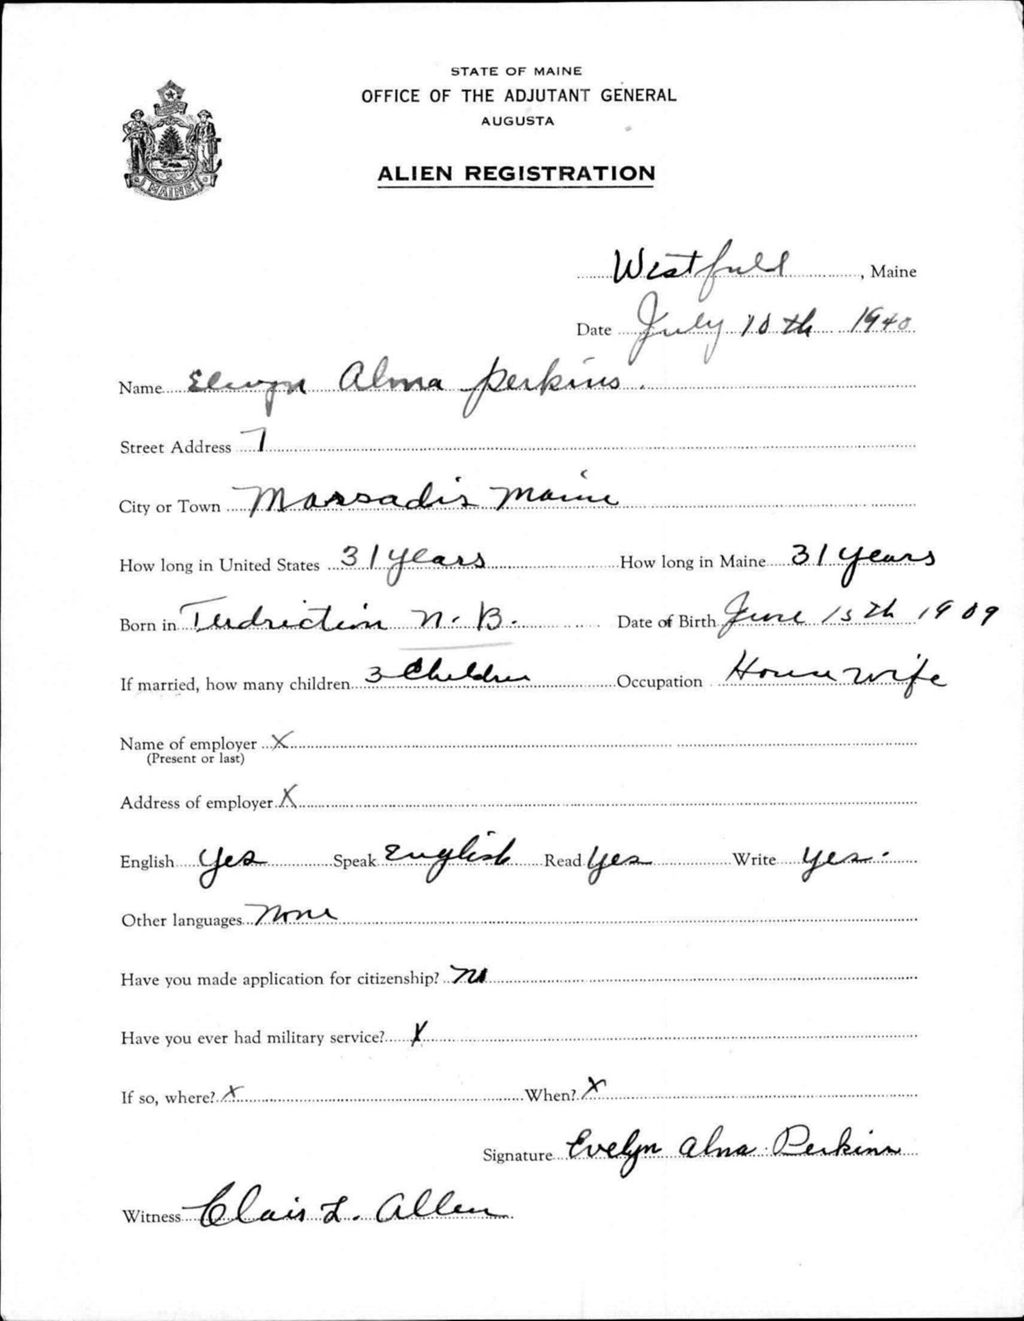 STATE OF MAINE
OFFICE OF THE ADJUTANT GENERAL
AUGUSTA
ALIEN REGISTRATION
MAINE
Westfield, Maine
Date July 10th 1940
Name Alma Perkins.
Street Address
City or Town Marsadis Maine
How long in United States 31 years How long in Maine 31 years
Born in N. B. Date of Birth June 15th 1909
If married, how many children 3 Children Occupation House Wife
Name of employer X
(Present or last)
Address of employer X
English Yes Speak English Read Yes Write Yes.
Other languages None
Have you made application for citizenship? No
Have you ever had military service? X
If so, where? X When? X
Signature Evelyn Alma Perkins
Witness L. Allen